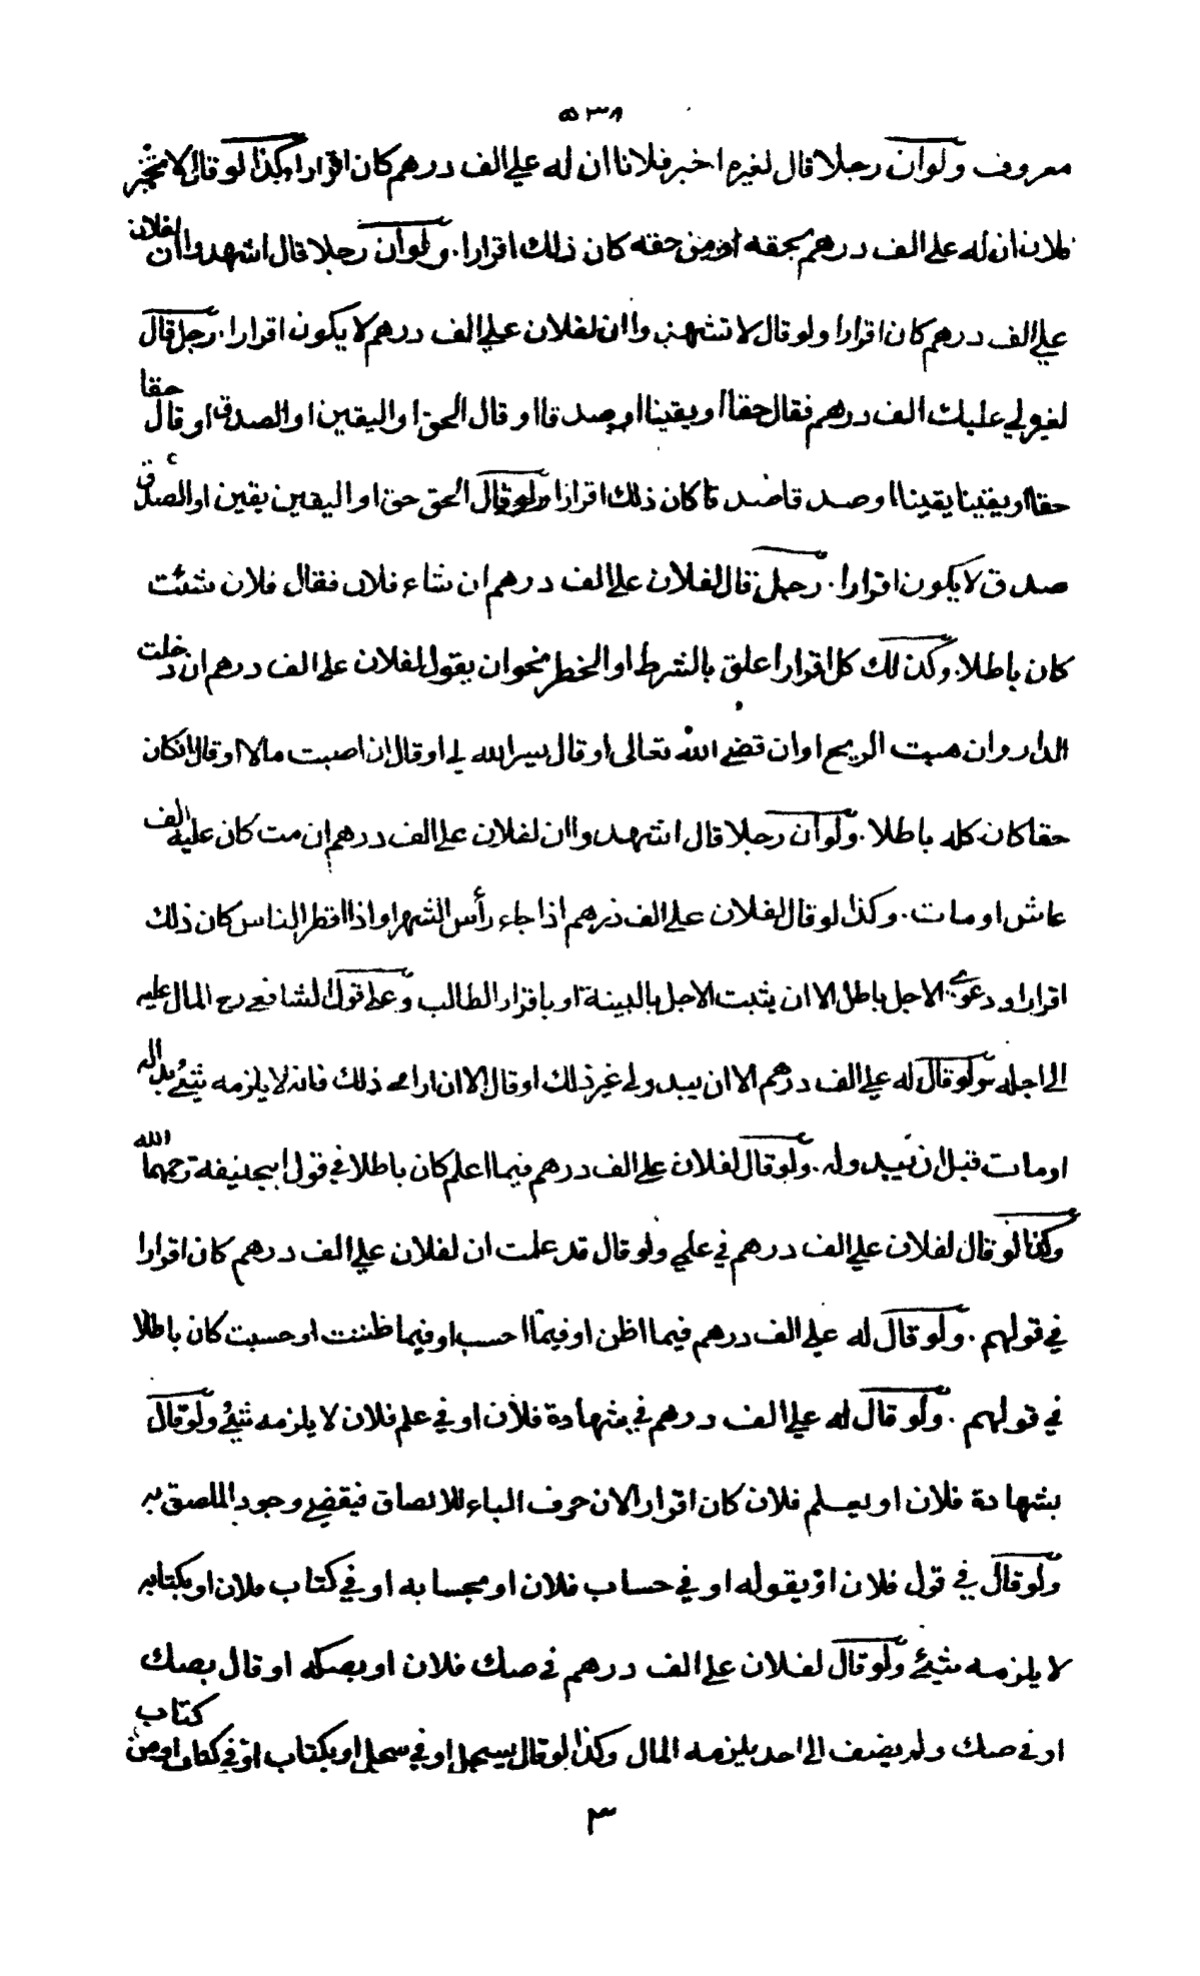 ٥٣٨
معروف ولو ان رجلا قال لغيره اخبر فلانا ان له علي الف درهم كان اقرارا وكذا لو قال لا تخبر
فلان ان له علي الف درهم بحقه او من حقه كان ذلك اقرارا . ولو ان رجلا قال اشهدوا ان لفلان
علي الف درهم كان اقرارا ولو قال لا تشهدوا ان لفلان علي الف درهم لا يكون اقرارا . رجل قال
لغيره لي عليك الف درهم فقال حقا او يقينا او صدقا او قال الحق او اليقين او الصدق او قال حقا
حقا او يقينا يقينا او صدقا صدقا كان ذلك اقرارا ولو قال الحق حق او اليقين يقين او الصدق
صدق لا يكون اقرارا . رجل قال لفلان علي الف درهم ان شاء فلان فقال فلان شئت
كان باطلا . وكذلك كل اقرار اعلق بالشرط او الخطر نحو ان يقول لفلان علي الف درهم ان دخلت
الدار وان هبت الريح او ان قضى الله تعالى او قال يسر الله لي او قال ان اصبت مالا او قال ان كان
حقا كان كله باطلا . ولو ان رجلا قال اشهدوا ان لفلان علي الف درهم ان مت كان عليه الف
عاش او مات . وكذا لو قال لفلان علي الف درهم اذا جاء رأس الشهر او اذا افطر الناس كان ذلك
اقرارا ودعوى الاجل باطل الا ان يثبت الاجل بالبينة او باقرار الطالب وعلى قول الشافعي رح المال عليه
الى اجله ولو قال له علي الف درهم الا ان يبدو لي غير ذلك او قال الا ان ارى ذلك فانه لا يلزمه شئ بدا له
او مات قبل ان يبدو له . ولو قال لفلان علي الف درهم فيما اعلم كان باطلا في قول ابيحنيفة رحمهما الله
وكذا لو قال لفلان علي الف درهم في علمي ولو قال قد علمت ان لفلان علي الف درهم كان اقرارا
في قولهم . ولو قال له علي الف درهم فيما اظن او فيما احسب او فيما ظننت او حسبت كان باطلا
في قولهم . ولو قال له علي الف درهم في شهادة فلان او في علم فلان لا يلزمه شئ ولو قال
بشهادة فلان او بعلم فلان كان اقرارا لان حرف الباء للالصاق فيقضي وجود الملصق به
ولو قال في قول فلان او بقوله او في حساب فلان او بحسابه او في كتاب فلان او بكتابه
لا يلزمه شئ ولو قال لفلان علي الف درهم في صك فلان او بصكه او قال بصك
او في صك ولم يضف الى احد يلزمه المال وكذا لو قال بسجل او في سجل او بكتاب او في كتاب او من كتاب
٣